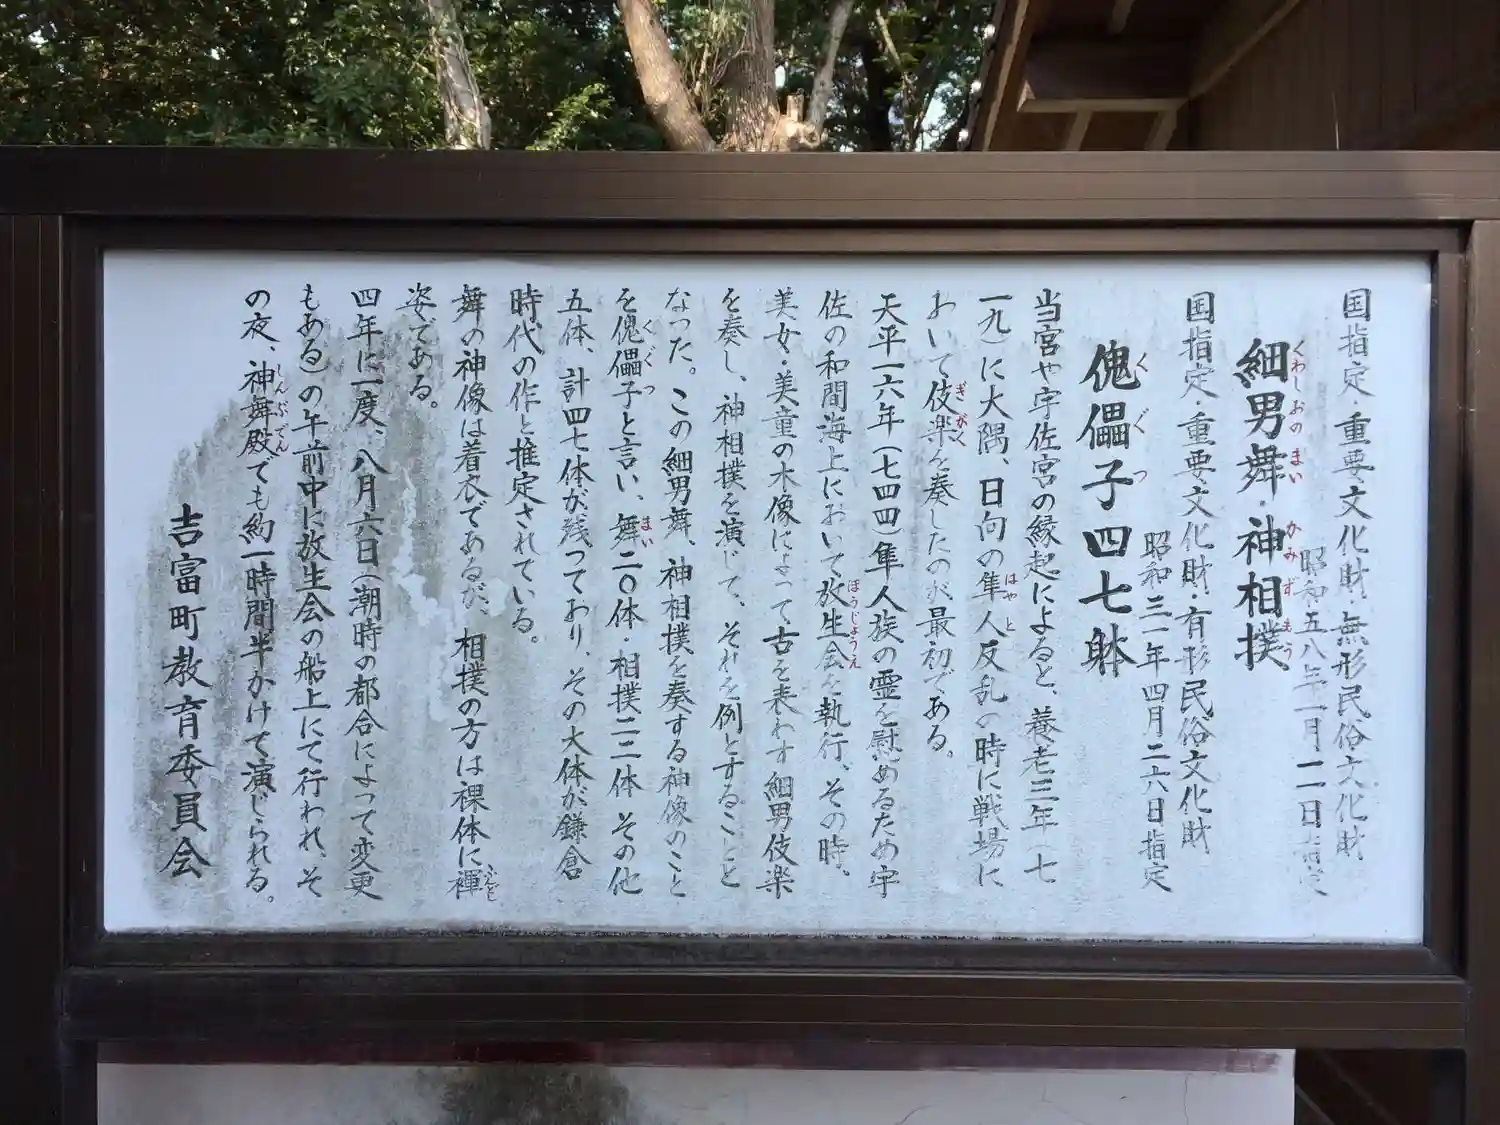 国指定・重要文化財・無形民俗文化財
細男舞・神相撲
くわしおのまい かみずもう
昭和五八年一月一一日指定
国指定・重要文化財・有形民俗文化財
傀儡子四七躰
くぐつ
昭和三一年四月二六日指定
当宮や宇佐宮の縁起によると、養老三年(七
一九)に大隅、日向の隼人反乱の時に戦場に
はやと
おいて伎楽を奏したのが最初である。
ぎがく
天平一六年(七四四)隼人族の霊を慰めるため宇
佐の和間海上において放生会を執行、その時、
ほうじょうえ
美女・美童の木像によって古を表わす細男伎楽
を奏し、神相撲を演じて、それを例とすることと
なった。この細男舞、神相撲を奏する神像のこと
を傀儡子と言い、舞二〇体・相撲二二体 その他
くぐつ まい
五体、計四七体が残っており、その大体が鎌倉
時代の作と推定されている。
舞の神像は着衣であるが、相撲の方は裸体に褌
ふんどし
姿である。
四年に一度、八月六日(潮時の都合によって変更
もある)の午前中に放生会の船上にて行われ、そ
の夜、神舞殿でも約一時間半かけて演じられる。
しんぶでん
吉富町教育委員会